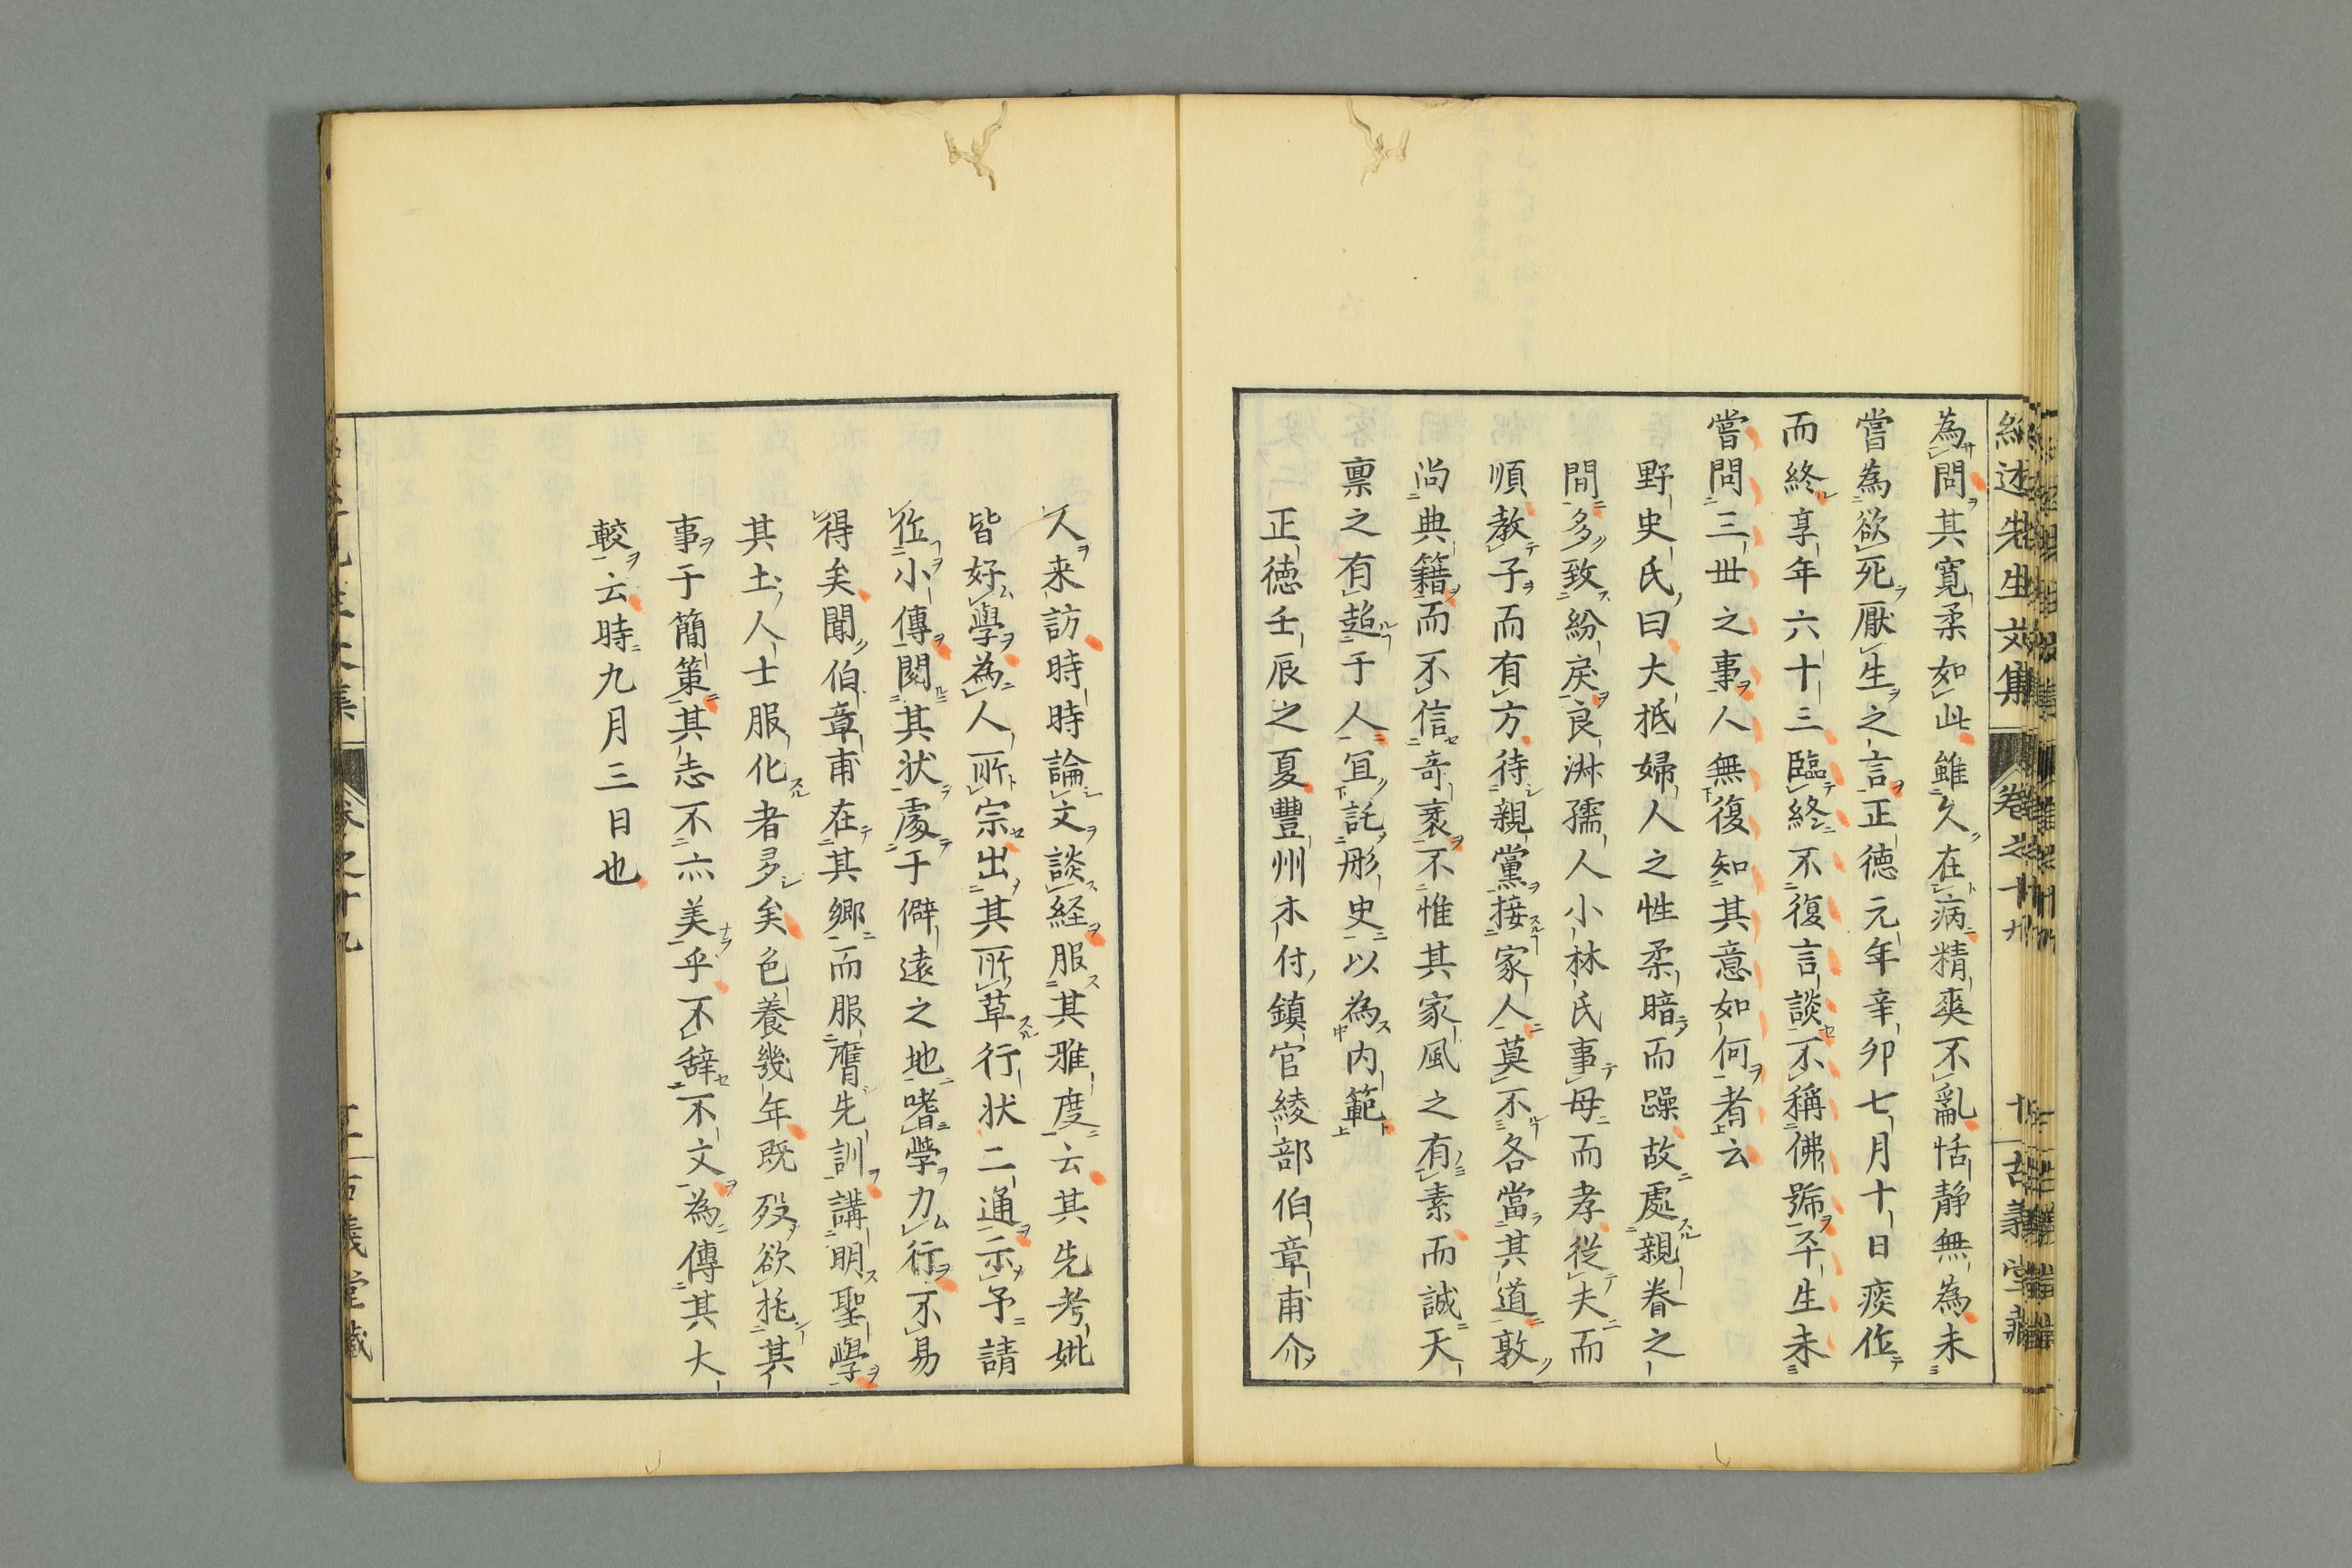 紹述先生文集 卷之十九 古義堂藏
為問其寛柔如此雖久在病精爽不亂恬静無為未
嘗為欲死厭生之言正德元年辛卯七月十日痰作
而終享年六十三臨終不復言談不稱佛號平生未
嘗問三世之事人無復知其意如何者云
野史氏曰大抵婦人之性柔暗而躁故處親眷之
間多致紛戾良淋孺人小林氏事母而孝從夫而
順教子而有方待親黨接家人莫不各當其道敦
尚典籍而不信奇袤不惟其家風之有素而誠天
禀之有超于人冝託彤史以為内範
正德壬辰之夏豐州木付鎮官綾部伯章甫介
人来訪時時論文談経服其雅度云其先考妣
皆好學為人所宗出其所草行状二通示予請
作小傳閲其状處于僻遠之地嗜學力行不易
得矣聞伯章甫在其郷而服膺先訓講明聖學
其土人士服化者多矣色養幾年既歿欲托其
事于簡策其志不亦美乎不辭不文為傳其大
較云時九月三日也